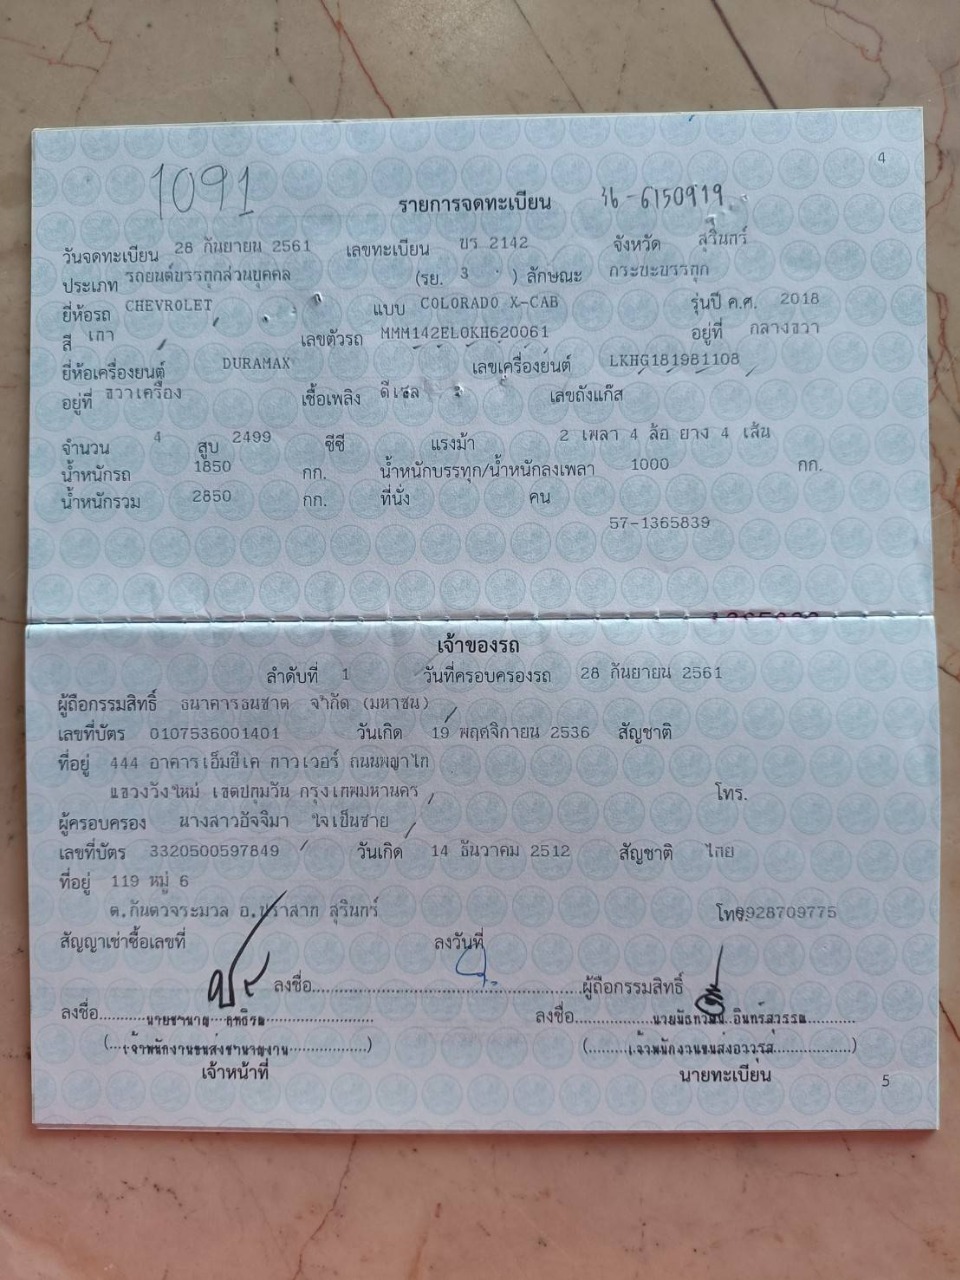 4
1091
รายการจดทะเบียน 36-6150919
วันจดทะเบียน 28 กันยายน 2561 เลขทะเบียน ขร 2142 จังหวัด สุรินทร์
ประเภท รถยนต์บรรทุกส่วนบุคคล (รย. 3 ) ลักษณะ กระบะบรรทุก
ยี่ห้อรถ CHEVROLET แบบ COLORADO X-CAB รุ่นปี ค.ศ. 2018
สี เทา เลขตัวรถ MMM142EL0KH620061 อยู่ที่ กลางขวา
ยี่ห้อเครื่องยนต์ DURAMAX เลขเครื่องยนต์ LKHG181981108
อยู่ที่ ขวาเครื่อง เชื้อเพลิง ดีเซล เลขถังแก๊ส
จำนวน 4 สูบ 2499 ซีซี แรงม้า 2 เพลา 4 ล้อ ยาง 4 เส้น
น้ำหนักรถ 1850 กก. น้ำหนักบรรทุก/น้ำหนักลงเพลา 1000 กก.
น้ำหนักรวม 2850 กก. ที่นั่ง คน
57-1365839
เจ้าของรถ
ลำดับที่ 1 วันที่ครอบครองรถ 28 กันยายน 2561
ผู้ถือกรรมสิทธิ์ ธนาคารธนชาต จำกัด (มหาชน)
เลขที่บัตร 0107536001401 วันเกิด 19 พฤศจิกายน 2536 สัญชาติ
ที่อยู่ 444 อาคารเอ็มบีเค ทาวเวอร์ ถนนพญาไท
แขวงวังใหม่ เขตปทุมวัน กรุงเทพมหานคร โทร.
ผู้ครอบครอง นางสาวอัจจิมา ใจเย็นชาย
เลขที่บัตร 3320500597849 วันเกิด 14 ธันวาคม 2512 สัญชาติ ไทย
ที่อยู่ 119 หมู่ 6
ต.กันตวจระมวล อ.ปราสาท สุรินทร์ โทร.0928709775
สัญญาเช่าซื้อเลขที่ ลงวันที่
ลงชื่อ ผู้ถือกรรมสิทธิ์
ลงชื่อ นายชานาญ ลงชื่อ อินทร์สุวรรณ
(เจ้าพนักงานขนส่งชำนาญงาน) (เจ้าพนักงานขนส่งอาวุโส)
เจ้าหน้าที่ นายทะเบียน
5